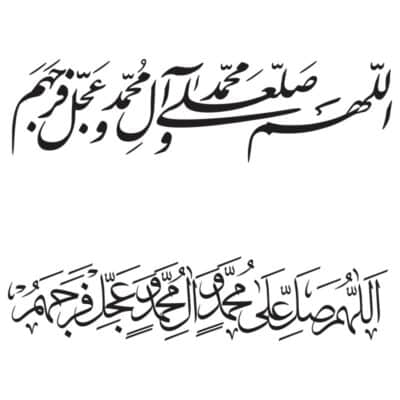 اللّهم صلّ علی محمّد و آل محمّد و عجّل فرجهم
اَللّهُمَّ صَلِّ عَلی مُحَمَّدٍ وَ الِ مُحَمَّدٍ وَ عَجِّل فَرَجَهُم